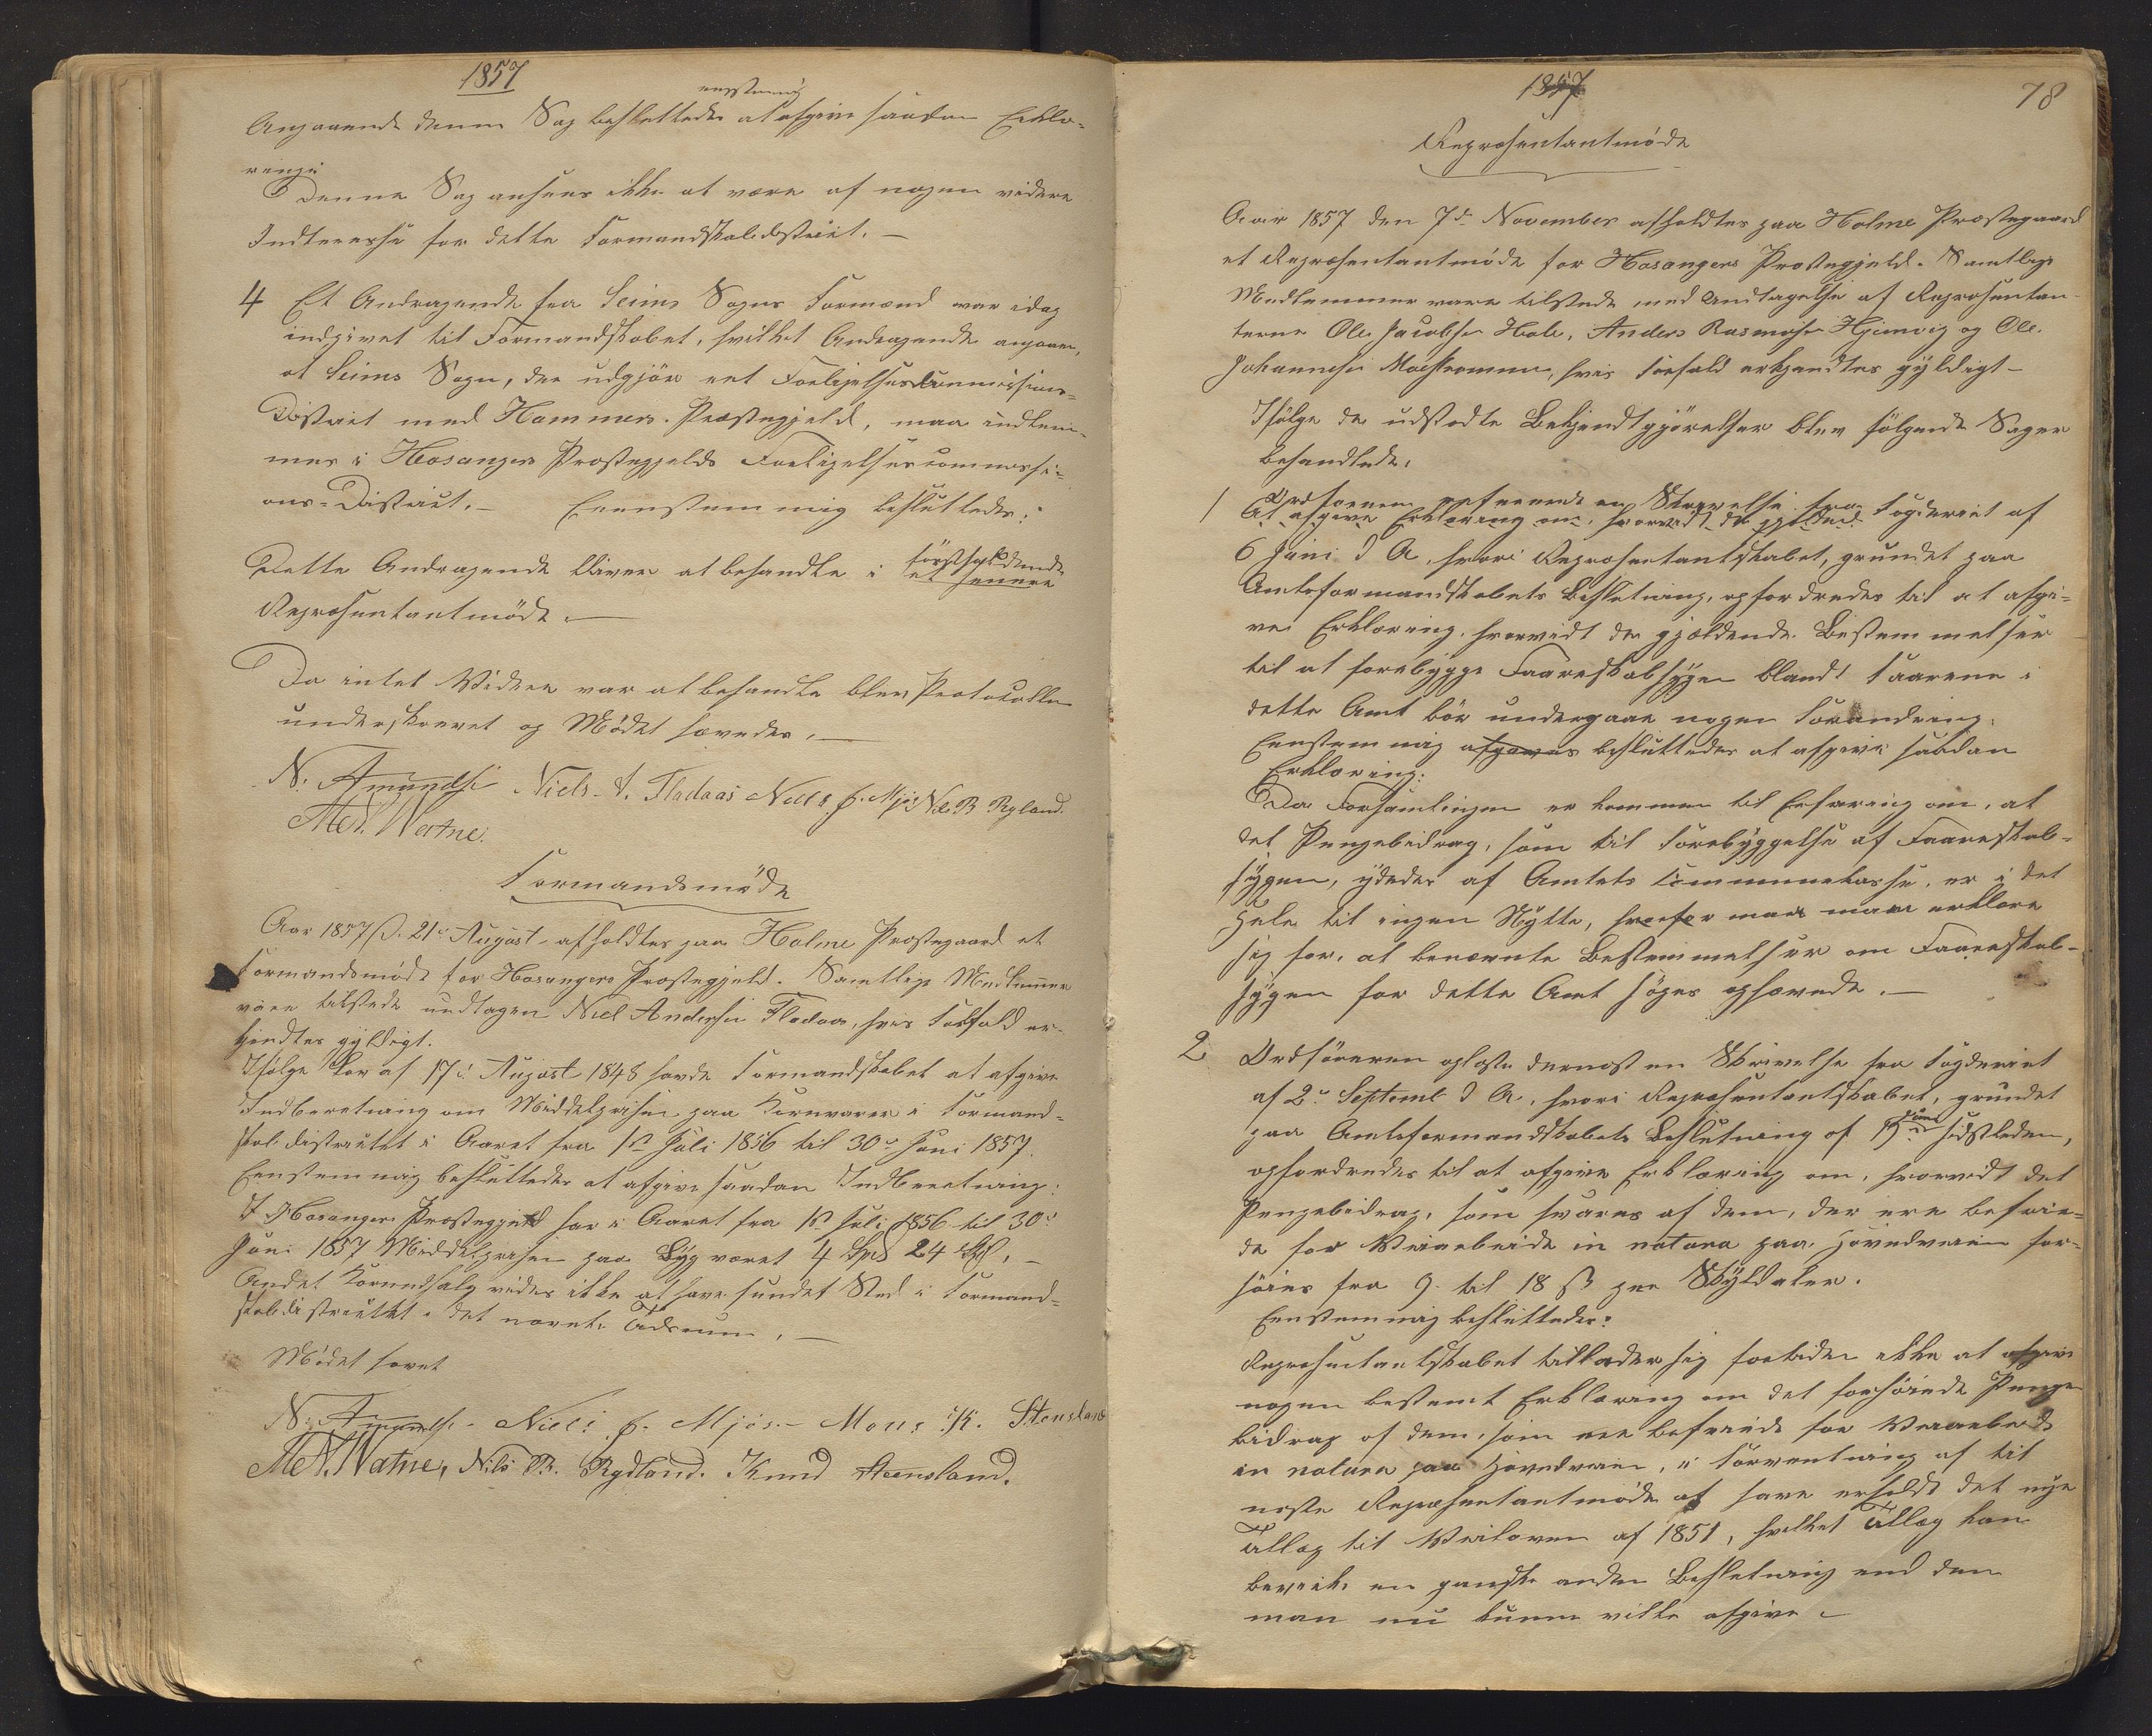 1857
eenstemmig
Angaaende denne Sag besluttedes at afgive saadan Erklæ-
ringe
Denne Sag ansees ikke at være af nogen videre
Indteresse for dette Formandskabsdistrict. —
4 Et Andragende fra Seims Sogns Formænd var idag
indgivet til Formandskabet, hvilket Andragende angaaer,
at Seims Sogn, der udgjør eet Forligelsescommissions-
District med Hammers Præstegjeld, maa indlem-
mes i Hosangers Præstegjelds Forligelsescommissi-
ons-District. — Eenstemmig besluttedes:
Dette Andragende bliver at behandle i førstholdende
et senere
Repræsentantmøde. —
Da intet Videre var at behandle blev Protocollen
underskrevet og Mødet hævedes. —
N. Amundsen Niels A. Fladaas Niels J. Mjøs Nils R Rydland.
M N. Watne.
Formandsmøde
Aar 1857 D. 21de August afholdtes paa Holme Præstegaard et
Formandsmøde for Hosangers Præstegjeld. Samtlige Medlemmer
vare tilstede undtagen Niel Andersen Fladaas, hvis Forfald er-
kjendtes gyldigt.
Ifølge Lov af 17de August 1848 havde Formandskabet at afgive
Indberetning om Middelprisen paa Kornvarer i Formand-
skabdistrictet i Aaret fra 1ste Juli 1856 til 30de Juni 1857.
Eenstemmig besluttedes at afgive saadan Indberetning:
I Hosangers Præstegjeld har i Aaret fra 1ste Juli 1856 til 30de
Juni 1857 Middelprisen paa Byg været 4 Spd 24 Sk. —
Andet Kornudsalg vides ikke at have fundet Sted i Formand-
skabdistrictet i det nævnte Tidsrum. —
Mødet hævet
N. Amundsen - Niels J. Mjøs - Mons K. Stensland
M N. Watne, Nils R. Rydland. Knud Steensland.
1857
78
Repræsentantmøde
Aar 1857 den 7de November afholdtes paa Holme Præstegaard
et Repræsentantmøde for Hosangers Præstegjeld. Samtlige
Medlemmer vare tilstede med Undtagelse af Repræsentan-
terne Ole Jacobsen Hole, Anders Rasmusen Hjemvig og Ole
Johannesen Molstrømmen, hvis Forfald erkjendtes gyldigt —
Ifølge de udstedte Bekjendtgjørelser blev følgende Sager
behandlede:
1 Ordføreren refererede en Skrivelse fra Fogderiet af
At afgive Erklæring om, hvorvidt de gjældende
6 Juni d A, hvori Repræsentantskabet, grundet paa
Amtsformandskabets Beslutning, opfordredes til at afgi-
ve Erklæring, hvorvidt de gjældende Bestemmelser
til at forebygge Faareskabsygen blandt Faarene i
dette Amt bør undergaae nogen Forandring.
Eenstemmig afgaves besluttedes at afgive saadan
Erklæring:
Da Forsamlingen er kommen til Erfaring om, at
det Pengebidrag, som til Forebyggelse af Faareskab-
sygen, ydedes af Amtets Communekasse, er i det
Hele til ingen Nytte, hvorfor man maa erklære
sig for, at benævnte Bestemmelser om Faareskab-
sygen for dette Amt søges ophævede. —
2 Ordføreren oplæste dernæst en Skrivelse fra Fogderiet
af 2de Septemb d A, hvori Repræsentantskabet, grundet
paa Amtsformandskabets Beslutning af 15de Juni sidstleden,
opfordredes til at afgive Erklæring om, hvorvidt det
Pengebidrag, som svares af dem, der ere befrie-
de for Veiarbeide in natura paa Hovedveien for-
høies fra 9 til 18 ß per Skylddaler.
Eenstemmig besluttedes:
Repræsentantskabet tillader sig fortiden ikke at afgive
nogen bestemt Erklæring om det forhøiede Penge-
bidrag af dem, som ere befriede for Veiarbeide
in natura paa Hovedveien, i Forventning af til
næste Repræsentantmøde at have erholdt det nye
Tillæg til Veiloven af 1851, hvilket Tillæg kan
bevirke en ganske anden Beslutning end den
man nu kunne ville afgive —